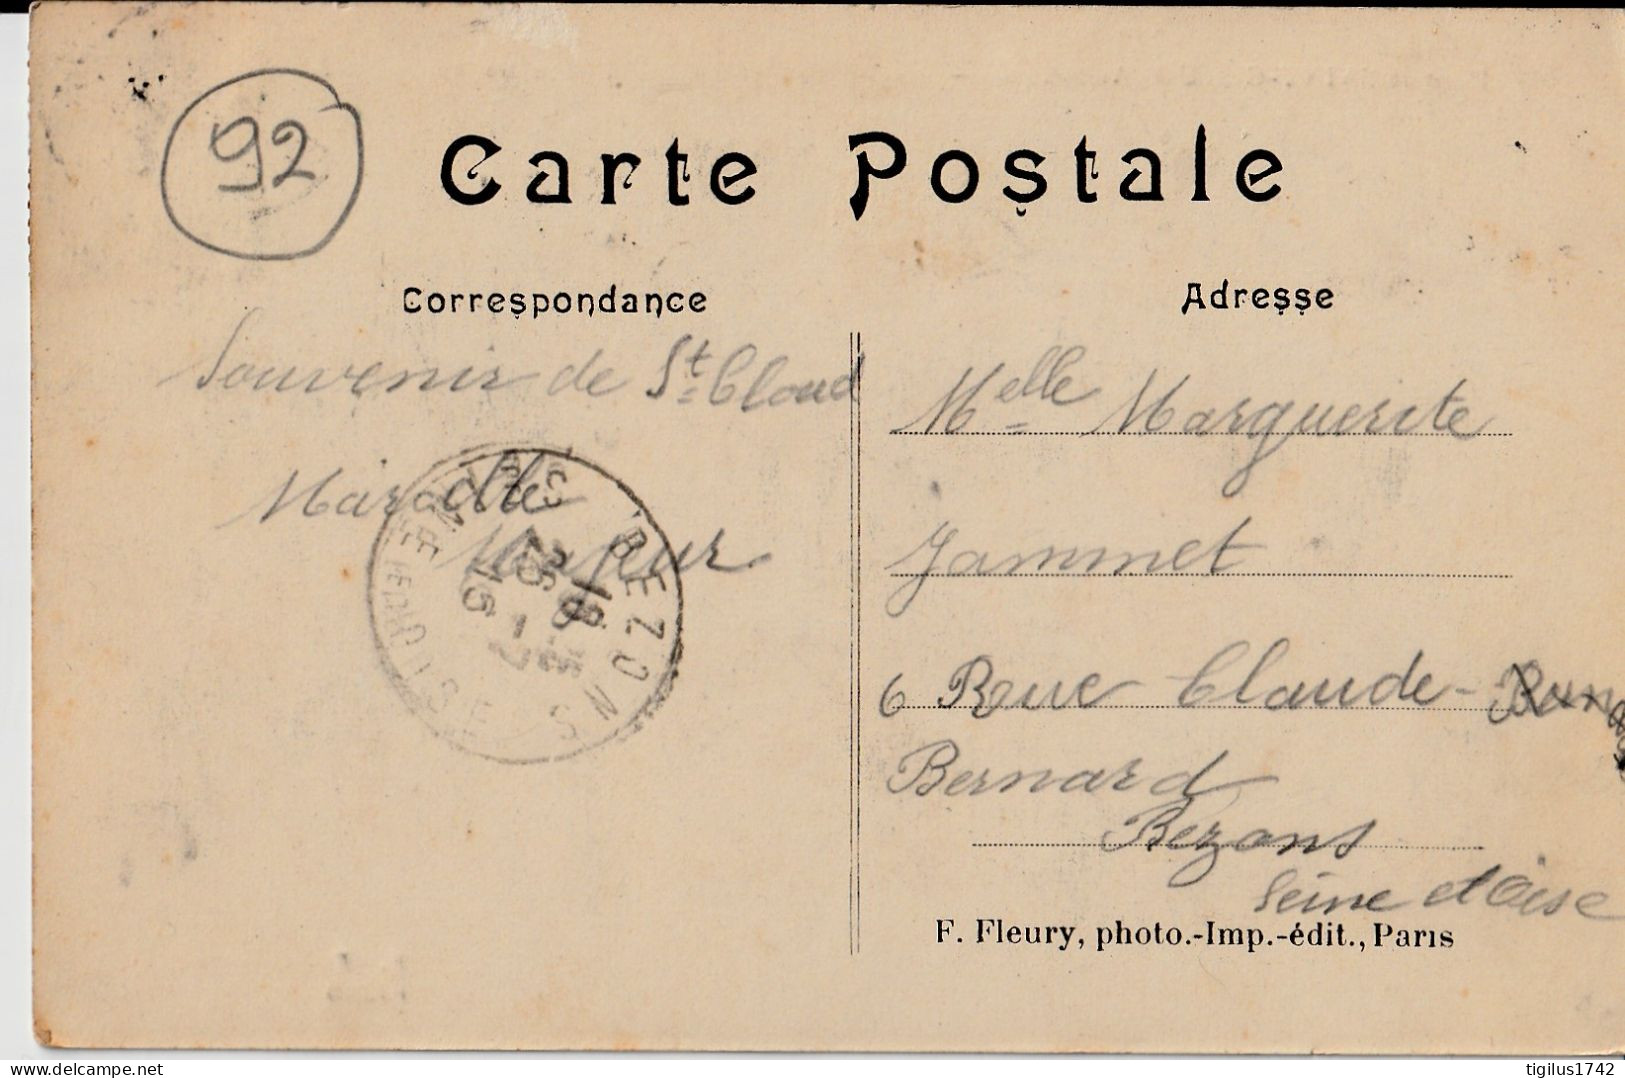 92
Carte Postale
Correspondance
Souvenir de St Cloud
BEZONS
SEINE ET OISE
15
Adresse
Melle Marguerite
Jammet
6 Rue Claude-
Bernard
Bezons
Seine et Oise
F. Fleury, photo.-Imp.-édit., Paris
delcampe.net
tigilus1742